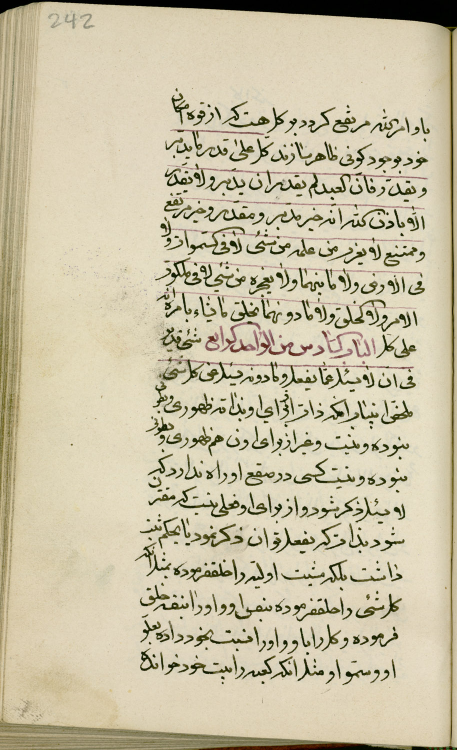 242
با وامر الله مرتفع کردد و کل هست که از قوه امکان
خود بوجود کونی ظاهر سازند کل علی قدر ما یدبر
و یقدر فان العبد لم یقدر ان یدبر ولا یقدر
الا باذن الله انه خیر مدبر و مقدر و خیر مرتفع
و ممتنع لا یعزب من علمه من شئی لا فی السموات ولا
فی الارض ولا ما بینهما ولا یعجزه من شئی لا فی ملکوت
الامر والخلق ولا ما دونهما یخلق ما یشاء بامره انه
علی کل شئی قدیر الباب السادس من الواحد الرابع
فی ان لا یسئل عما یفعل و ما دونه یسئل عن کل شئی
ملخص این باب آنکه ذات ازل ای او بذاته ظهوری و بطونی
نبوده و نیست و غیر از برای او ن هم ظهوری و بطونی
نبوده و نیست کسی در صقع او راه ندارد که
لا یسئل ذکر شود و از برای او فعلی نیست که مقترن
شود بذات که یفعل توان ذکر نمود یا یحکم نسبت
داشت بلکه مشیت اولیه را خلق فرموده بمثل آنکه
کل شئی را خلق فرموده بنفس او و او را بنفسه خلق
فرموده و کل را باو و او را نسبت بخود داده بعلو
او و سمو او مثل آنکه کعبه را بیت خود خوانده